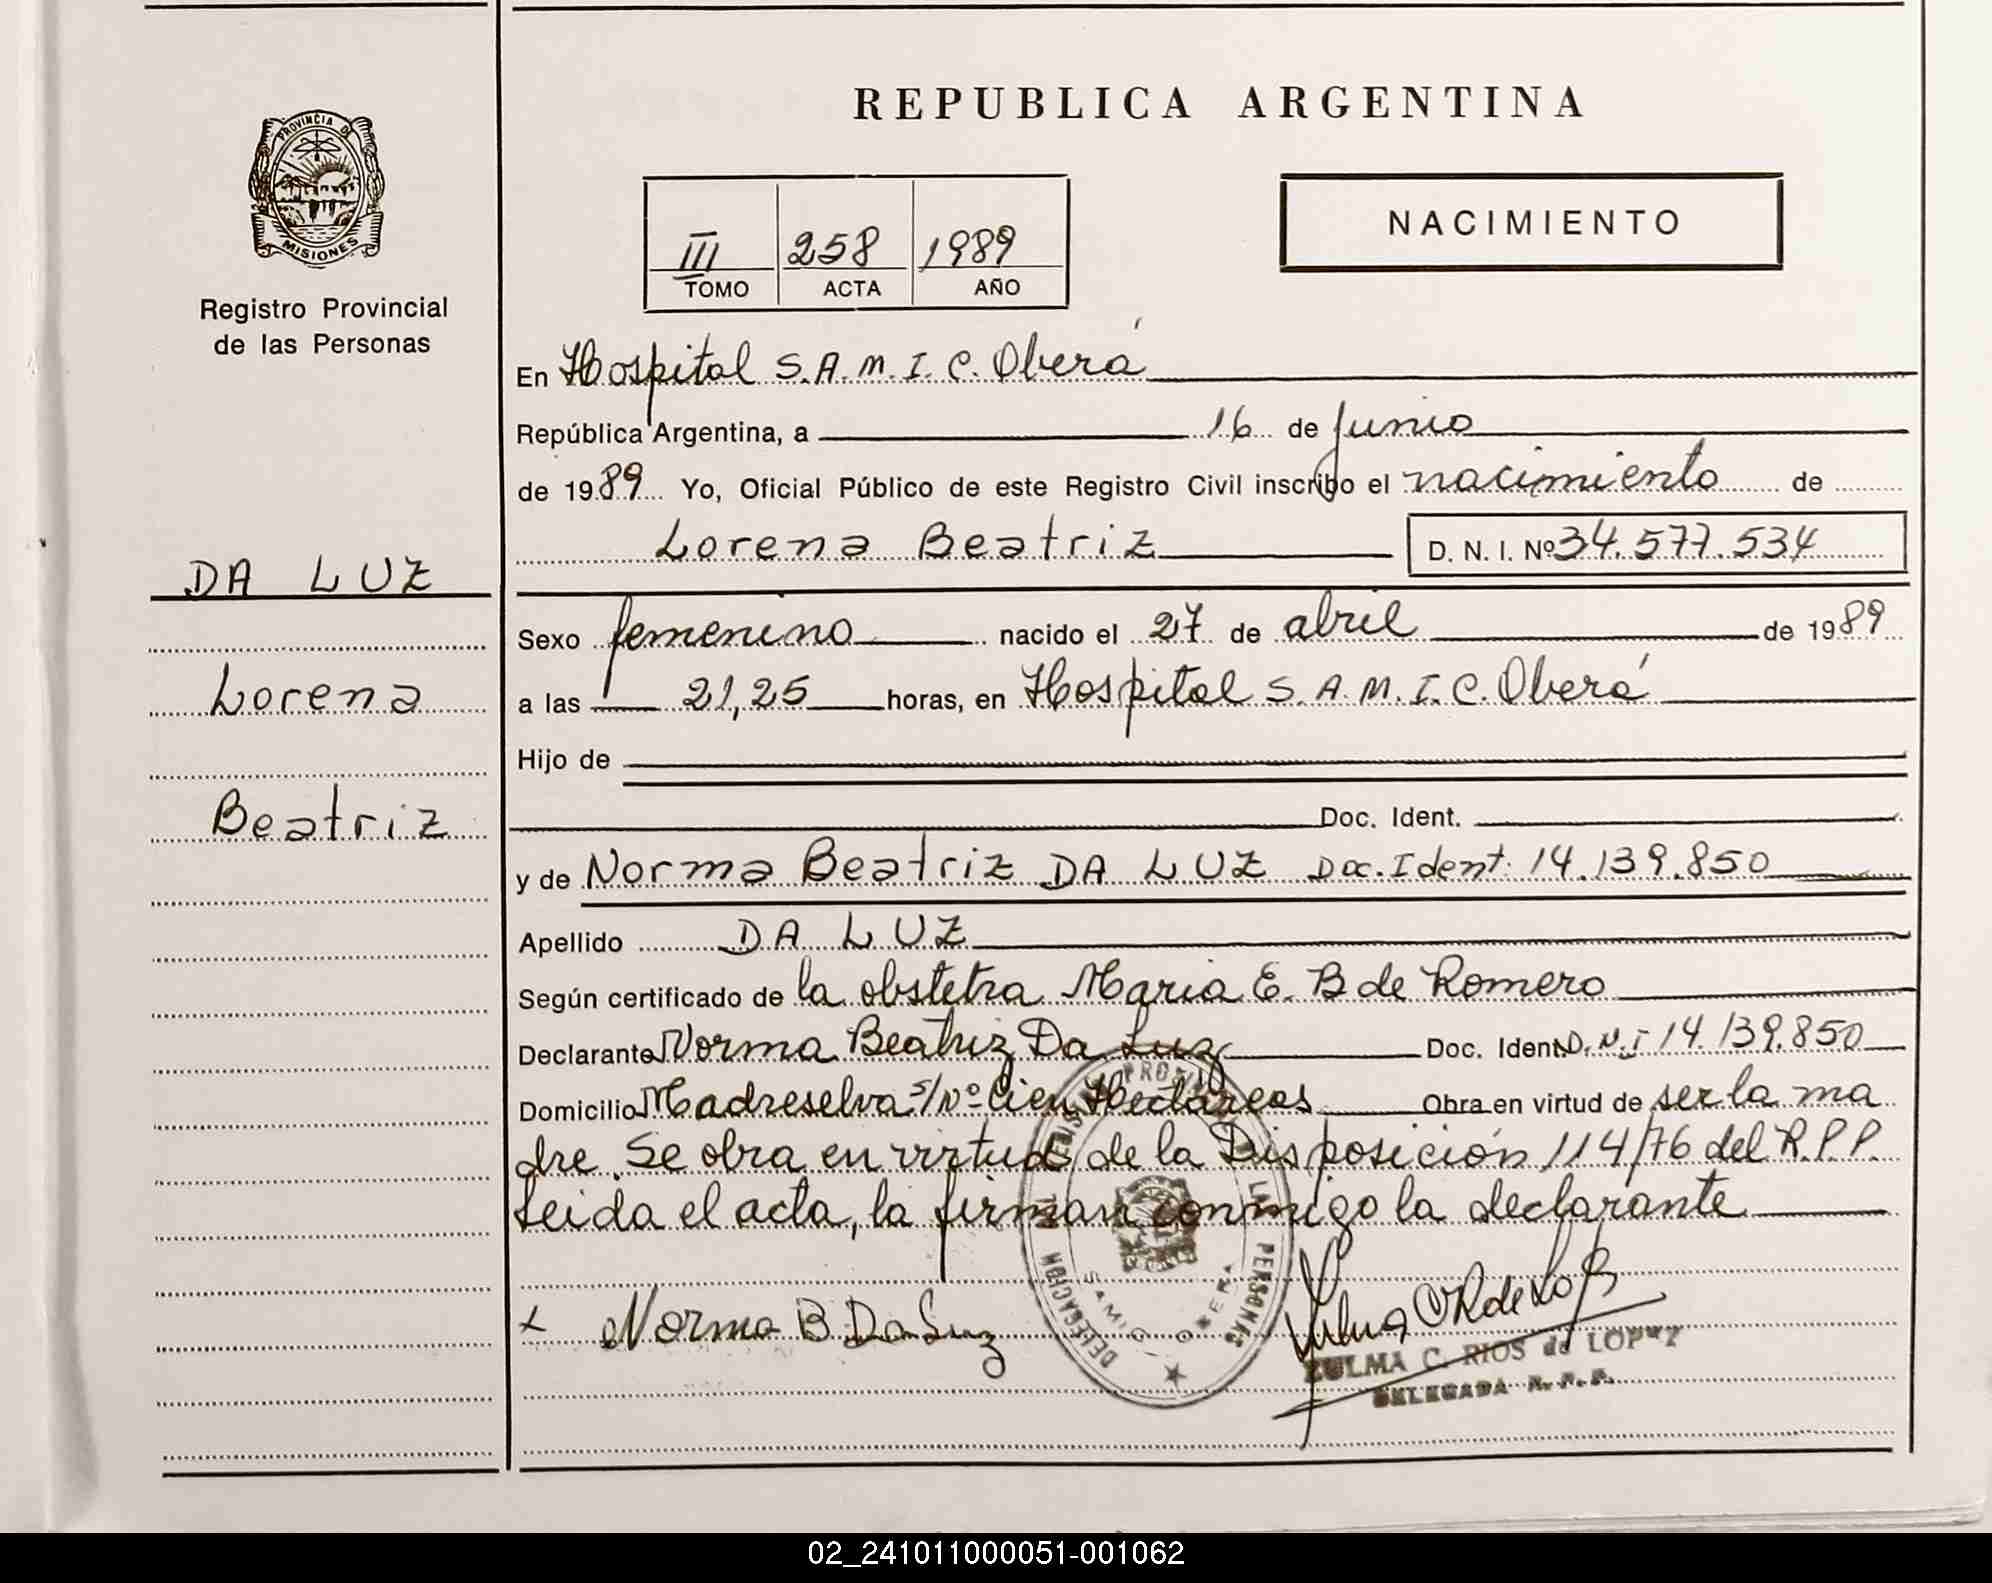 REPUBLICA ARGENTINA
PROVINCIA DE
MISIONES
Registro Provincial
de las Personas
III 258 1989
TOMO ACTA AÑO
NACIMIENTO
En Hospital S.A.M.I.C. Oberá
República Argentina, a 16 de Junio
de 1989 Yo, Oficial Público de este Registro Civil inscribo el nacimiento de
Lorena Beatriz D. N. I. Nº 34.577.534
DA LUZ
Lorena
Beatriz
Sexo femenino nacido el 27 de abril de 1989
a las 21,25 horas, en Hospital S.A.M.I.C. Oberá
Hijo de
Doc. Ident.
y de Norma Beatriz DA LUZ Doc. Ident: 14.139.850
Apellido DA LUZ
Según certificado de la obstetra Maria E. B de Romero
Declarante Norma Beatriz Da Luz Doc. Ident. D.N.I 14.139.850
Domicilio Madreselva s/Nº Cien Hectáreas Obra en virtud de ser la ma
dre. Se obra en virtud de la Disposición 114/76 del R.P.P.
Leida el acta, la firman conmigo la declarante
x Norma B Da Luz
DELEGACION LAS PERSONAS
ZULMA C. RIOS de LOPEZ
DELEGADA R. P. P.
02_241011000051-001062